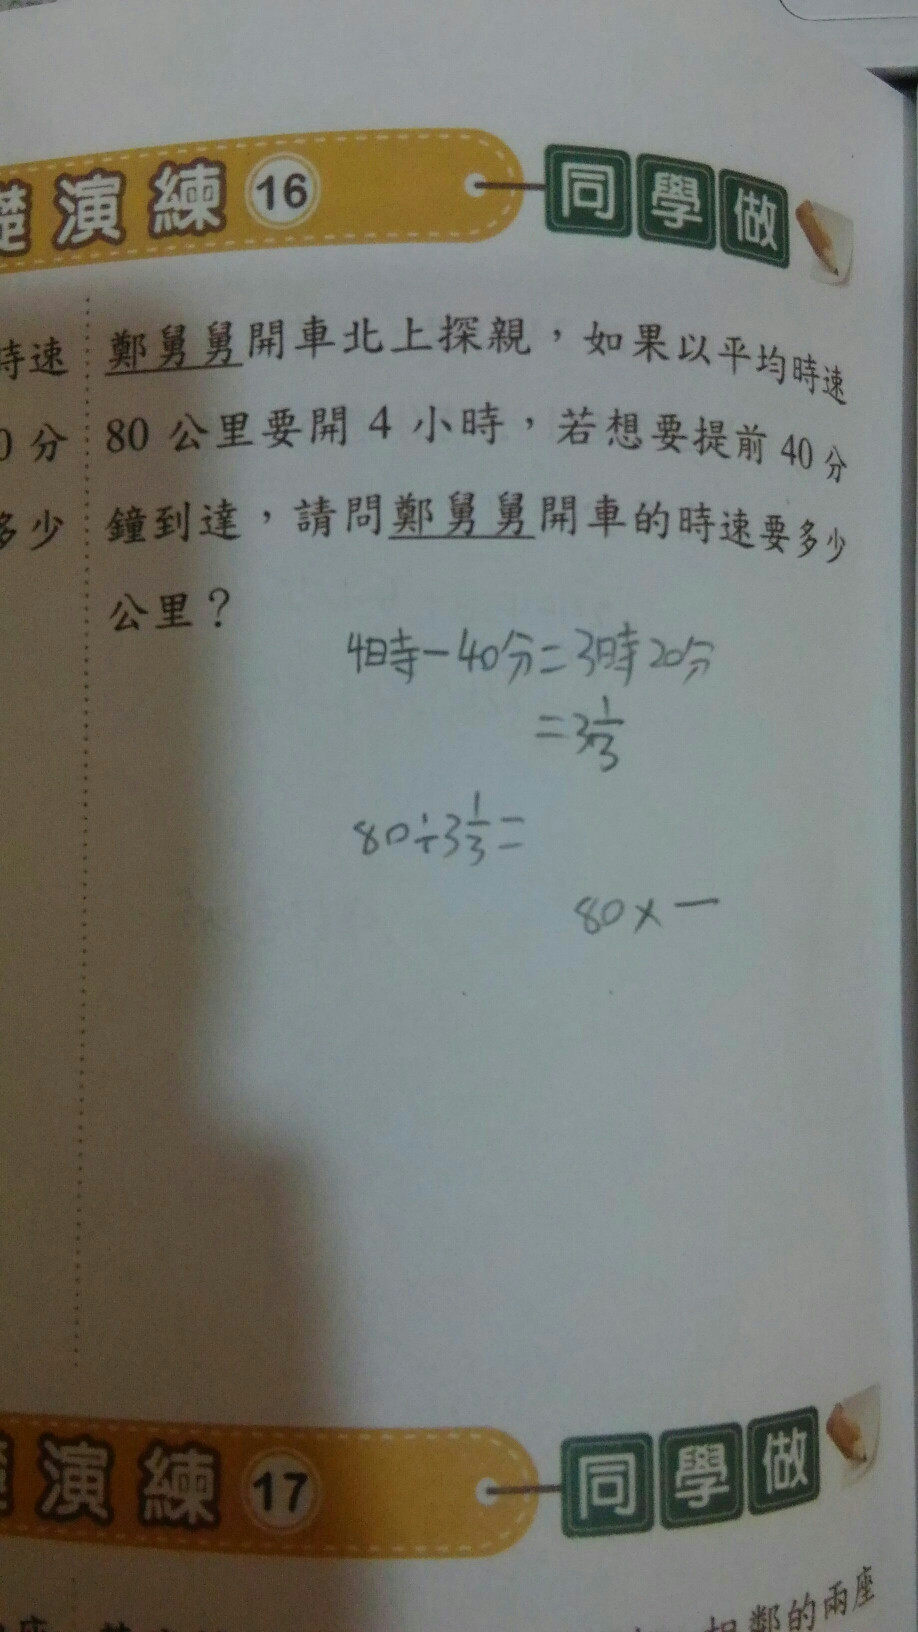 演練 16 同學做
時速
鄭舅舅開車北上探親，如果以平均時速
0分
80 公里要開 4 小時，若想要提前 40 分
多少
鐘到達，請問鄭舅舅開車的時速要多少
公里？
4時－40分＝3時20分
＝3 1/3
80÷3 1/3＝
80×
演練 17 同學做
相鄰的兩座